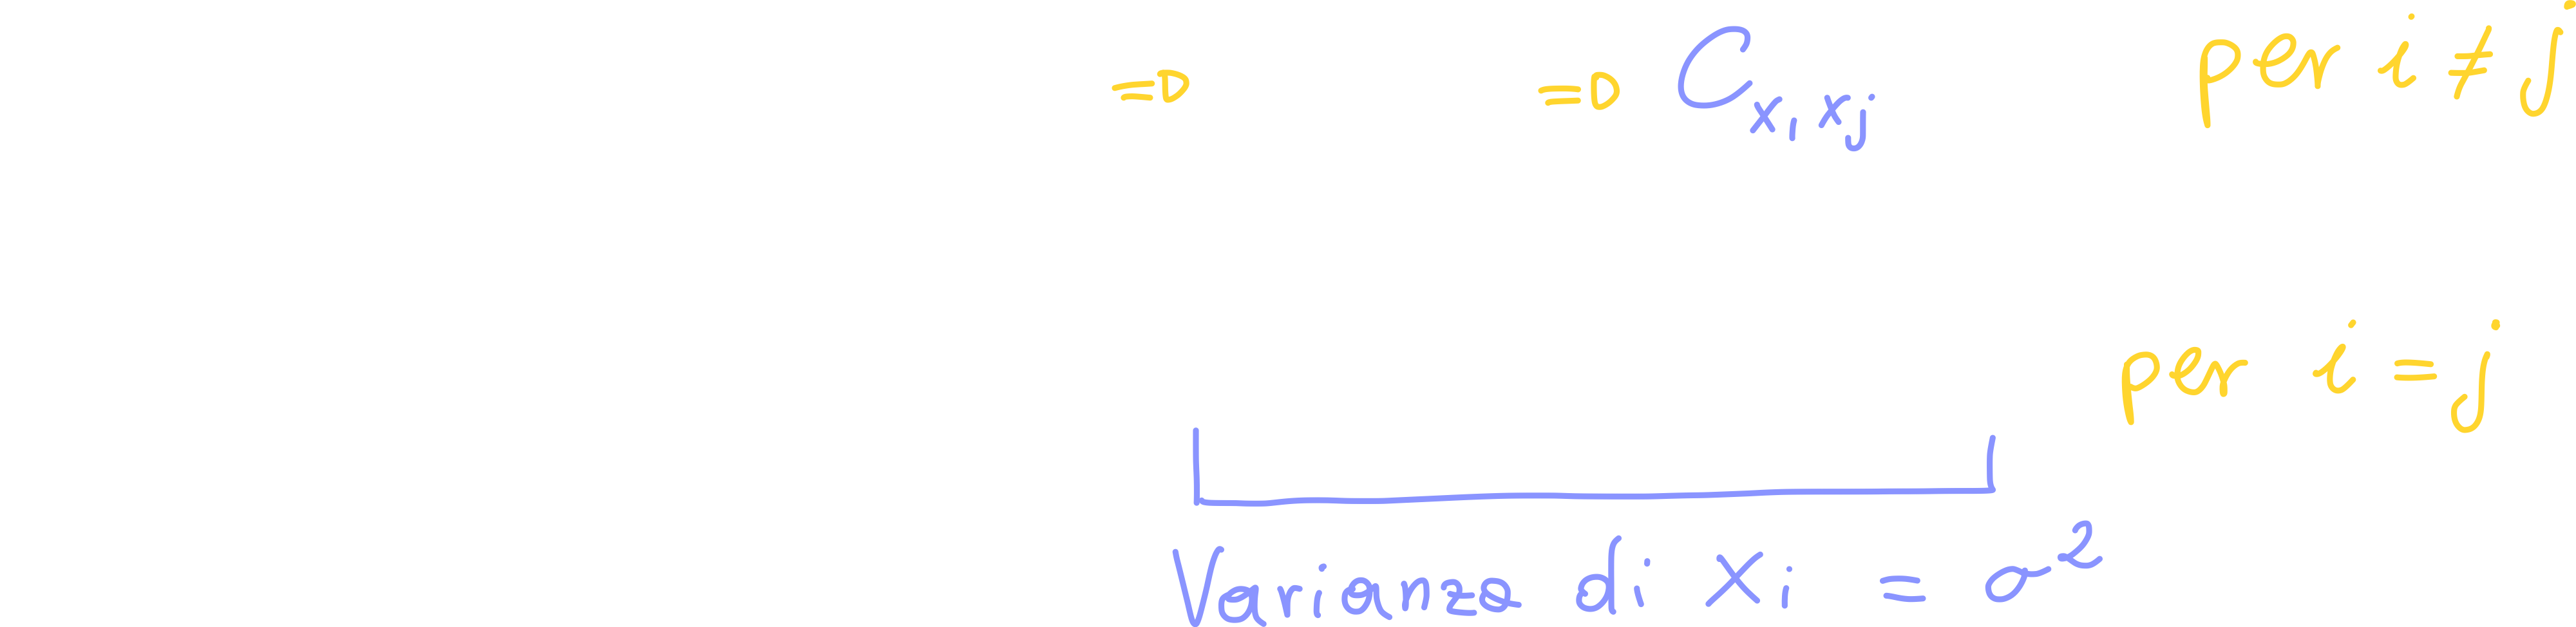 =D =D C x₁ xⱼ per i ≠ j
per i = j
Varianza di Xi = σ²